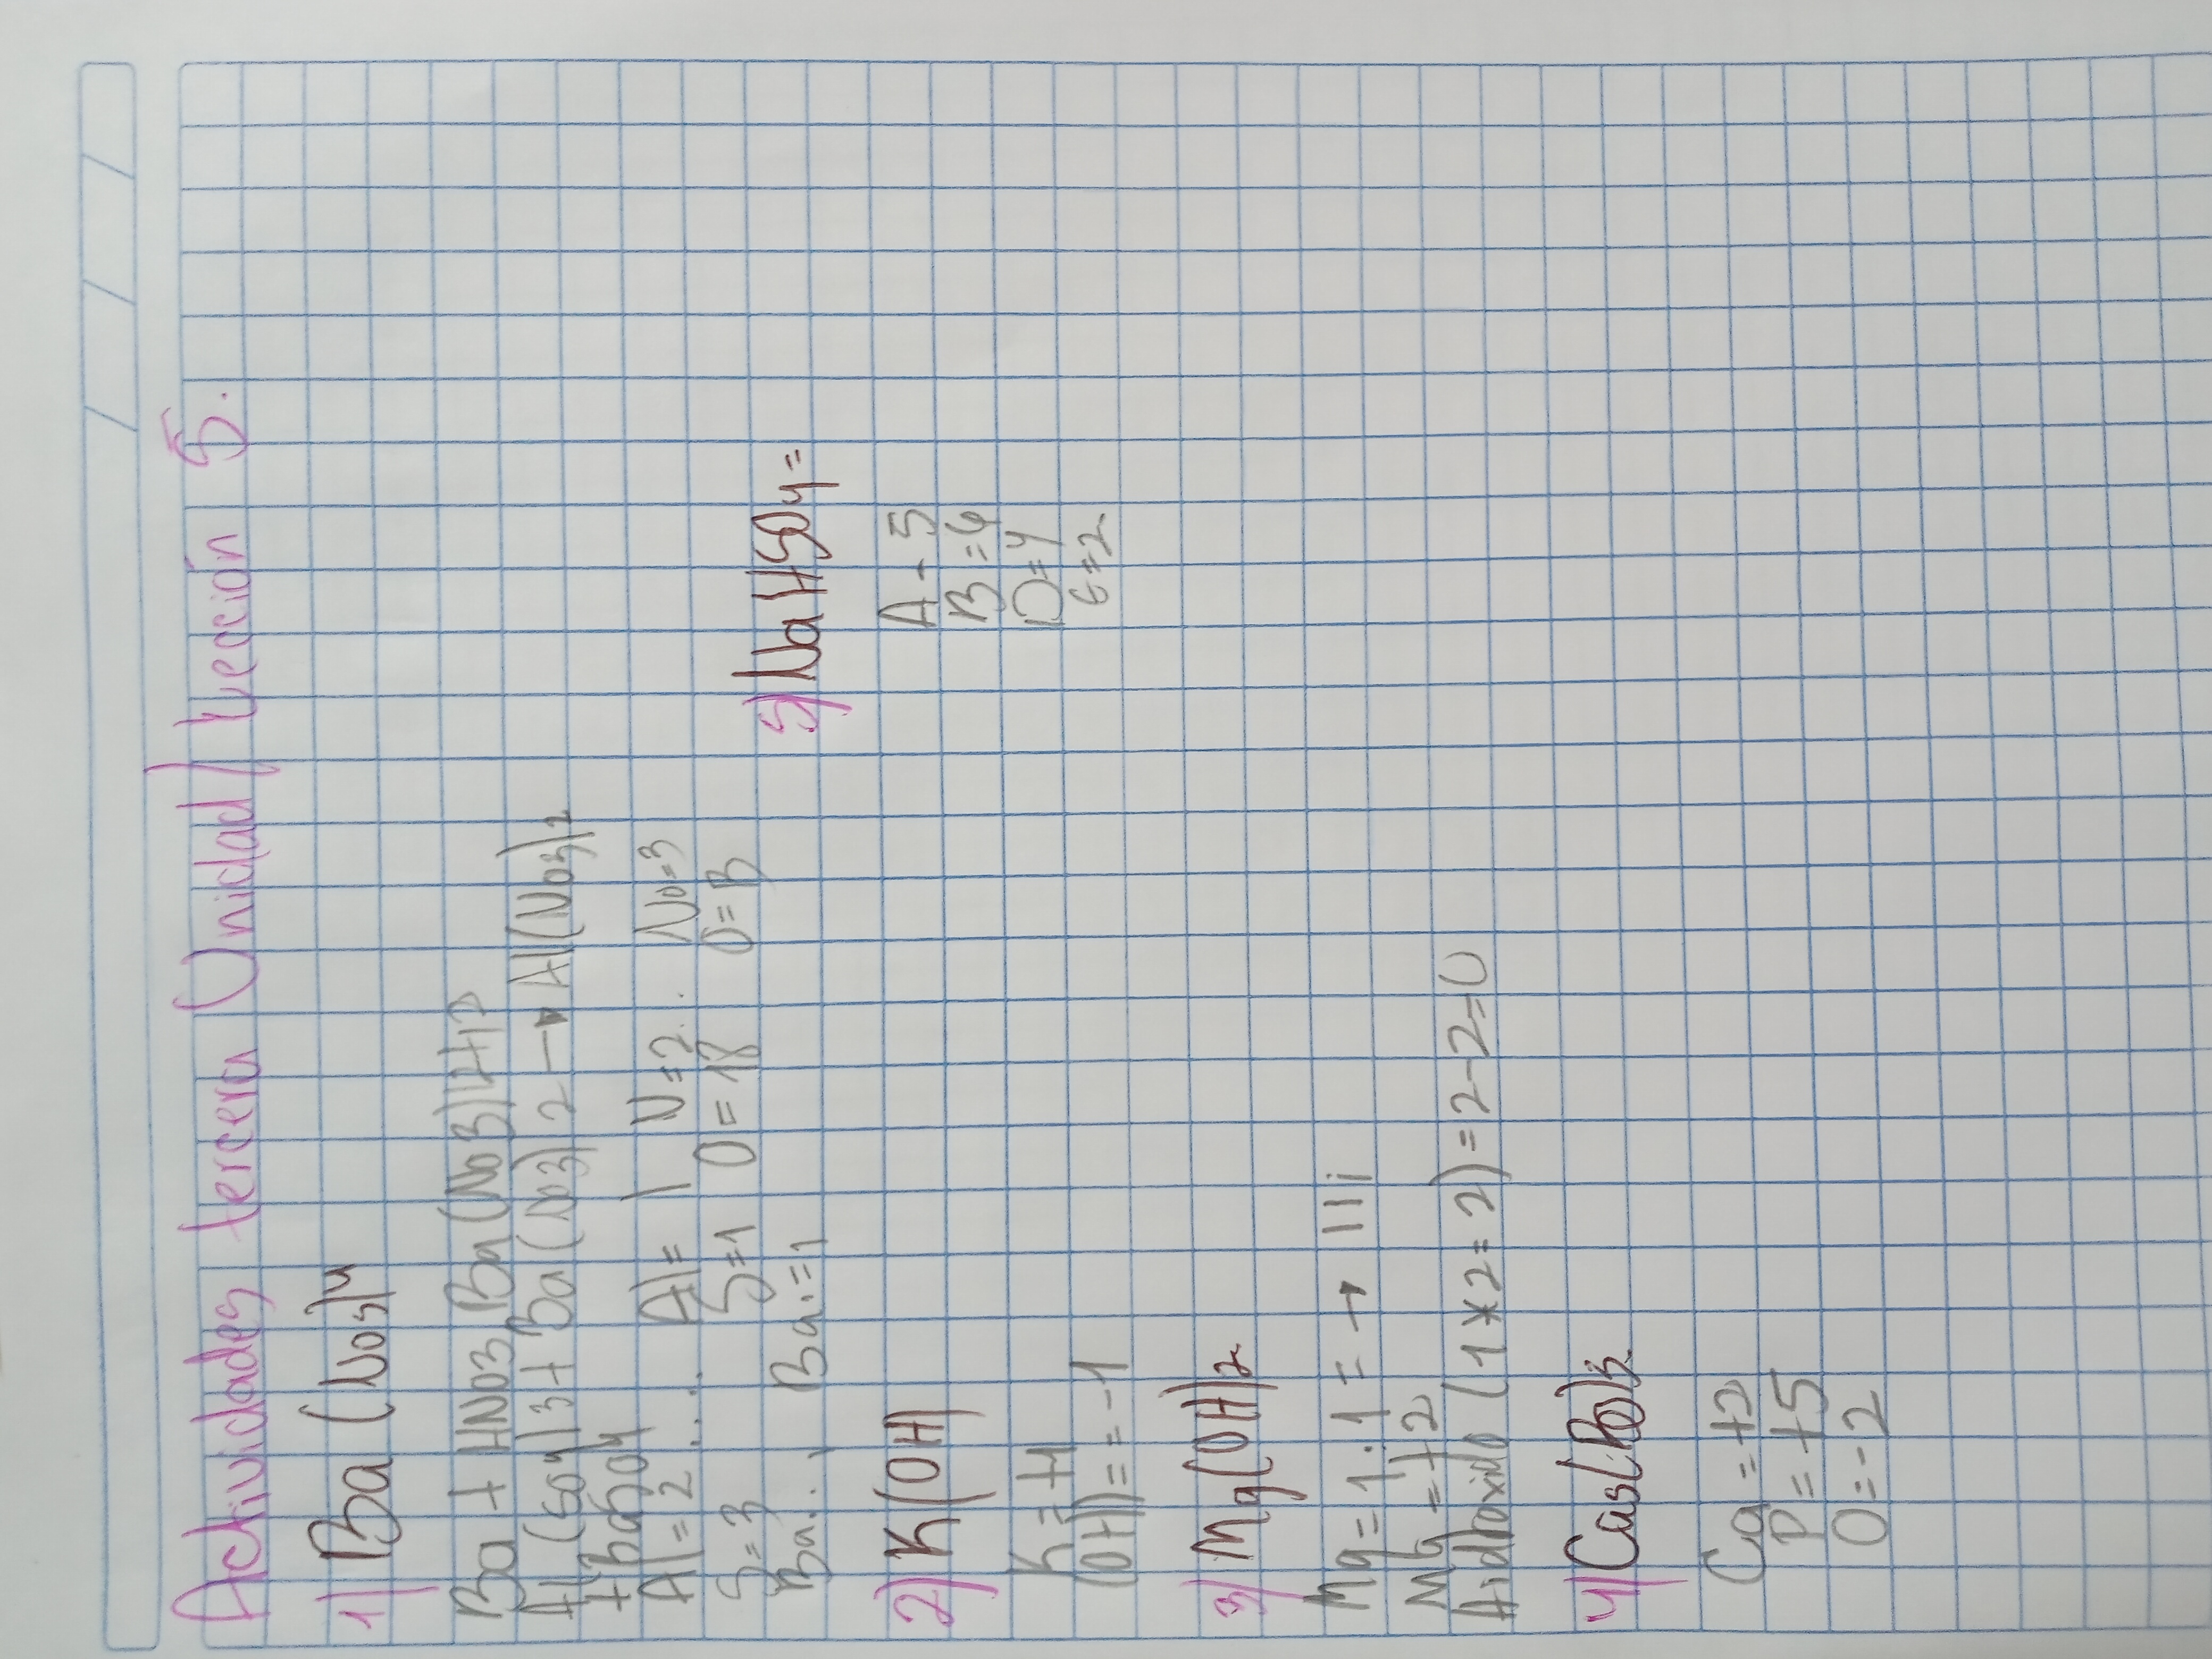 Actividades tercera Unidad / Lección 5.
1) Ba (No3)4
Ba + HNO3 Ba (No3)(H)?
Al (so4)3 + Ba (No3) 2 → Al(No3)2
+ BaSO4
Al = 2 . . . Al = 1 N = 2. No=3
S = 3 S = 1 O = 18 O = B
Ba. . , Ba. = 1
2) K(OH)
K = +1
(OH) = = -1
3) Mg(OH)2
Mg = 1.1 = → 11i
Mg = +2
Hidroxido (1 x 2 = 2) = 2 - 2 = 0
4) Cas(Po)3
Ca = +2
P = +5
O = -2
5) NaHSO4 =
A - 5
B = 6
D = 4
6 = 2